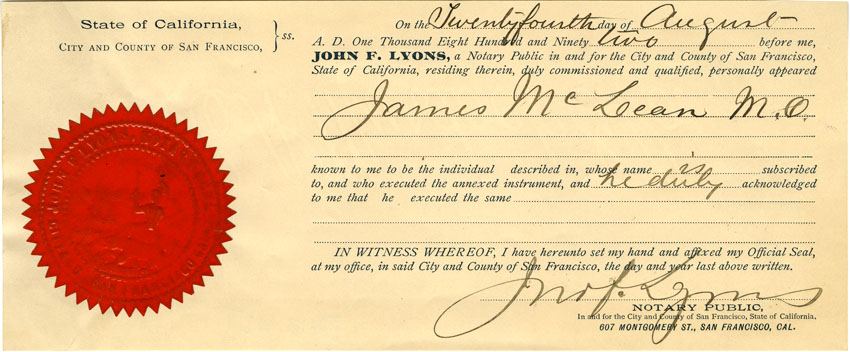 State of California,
CITY AND COUNTY OF SAN FRANCISCO, } ss.
On the Twentyfourth day of August
A. D. One Thousand Eight Hundred and Ninety two before me,
JOHN F. LYONS, a Notary Public in and for the City and County of San Francisco,
State of California, residing therein, duly commissioned and qualified, personally appeared
James McLean M.D.
known to me to be the individual described in, whose name is subscribed
to, and who executed the annexed instrument, and he duly acknowledged
to me that he executed the same
IN WITNESS WHEREOF, I have hereunto set my hand and affixed my Official Seal,
at my office, in said City and County of San Francisco, the day and year last above written.
Jno f. Lyons
NOTARY PUBLIC,
In and for the City and County of San Francisco, State of California,
607 MONTGOMERY ST., SAN FRANCISCO, CAL.